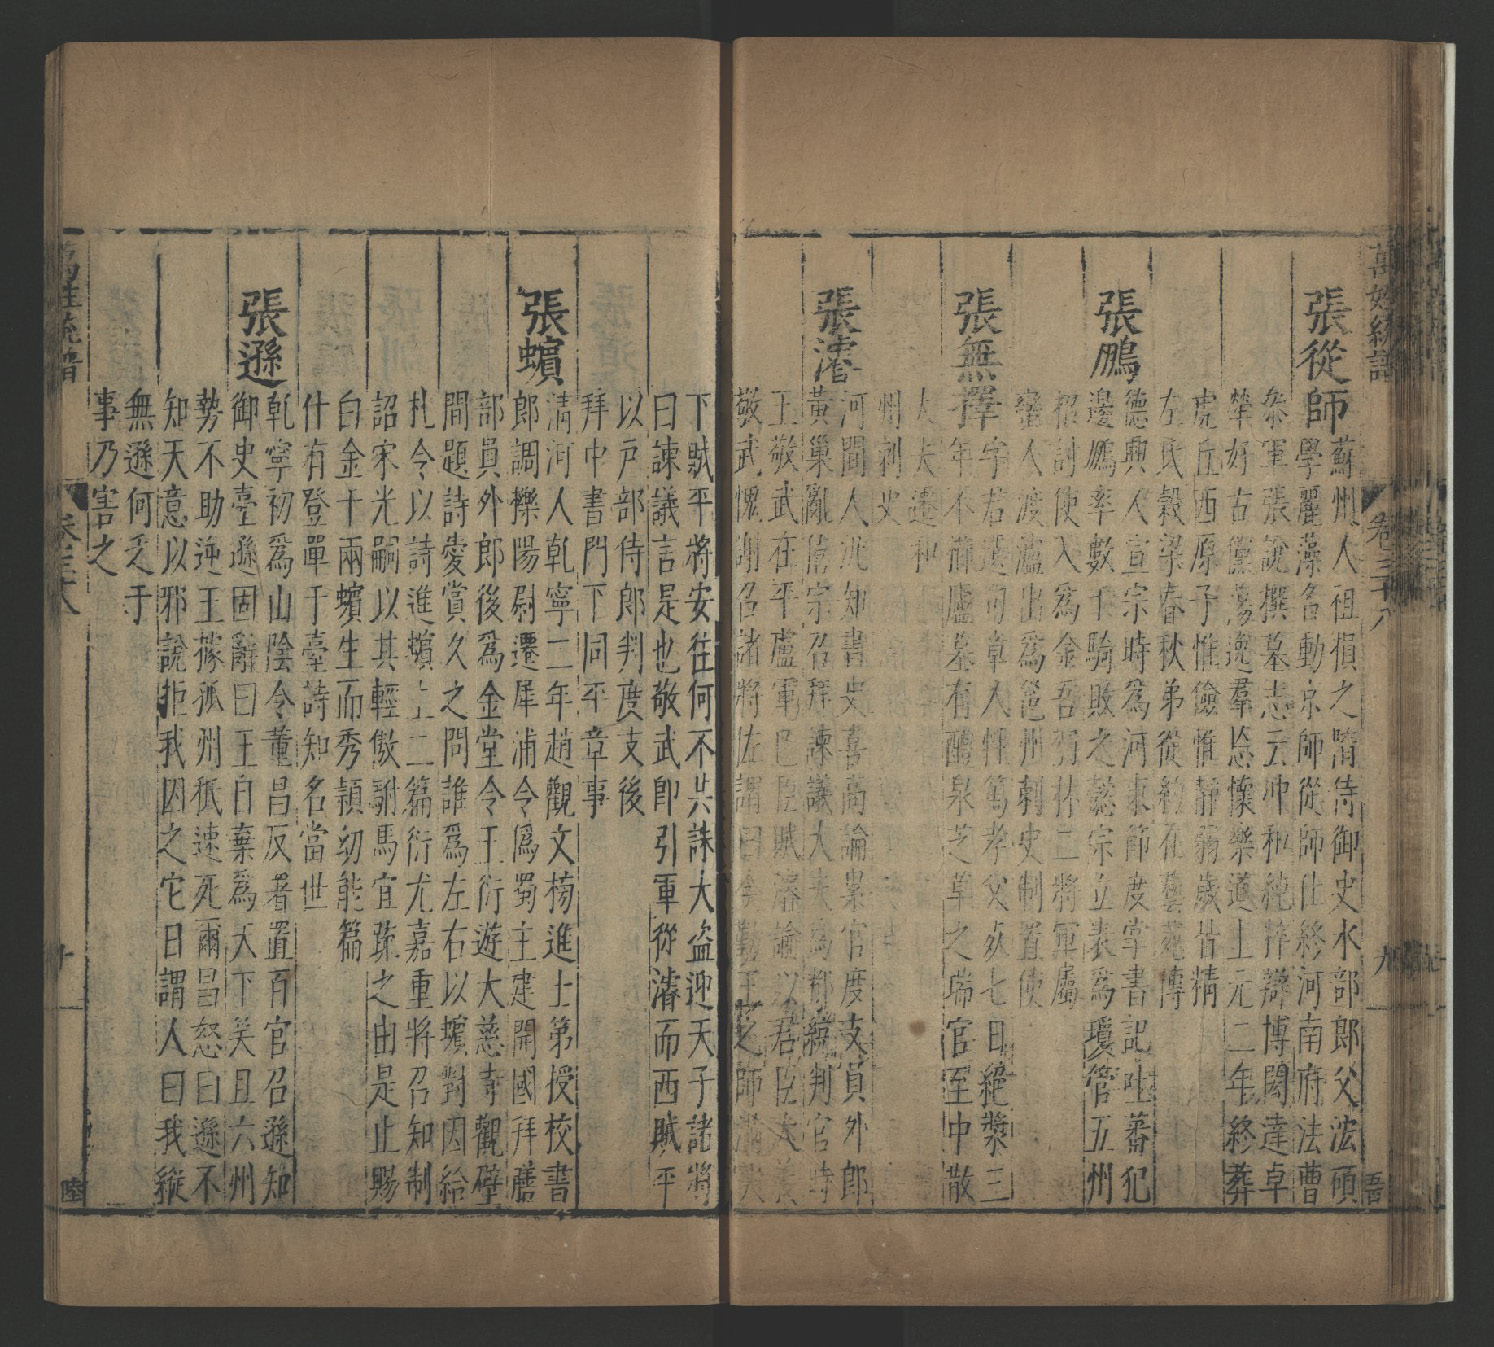 萬姓統譜
卷三十八
九
張從師
蘇州人祖損之隋侍御史水部郎父法碩
學麗藻名動京師從師仕終河南府法曹
參軍張說撰墓志云冲和純粹辯博閎達卓
犖好古儻蕩逸羣恣懷樂道上元二年終葬
虎丘西原子惟儉惟靜翦歲皆精
左氏穀梁春秋弟從約在藝苑傳
張鵬
德興人宣宗時為河東節度掌書記吐蕃犯
邊鵬率數千騎敗之懿宗立表為瓊管五州
招討使入為金吾羽林二將軍屬
蠻人渡瀘出為邕州刺史制置使
張無擇
字君選句章人性篤孝父歿七日絕漿三
年不蘇廬墓有醴泉芝草之瑞官至中散
大夫遷和
州刺史
張濬
河間人汎知書史喜高論累官度支員外郎
黃巢亂僖宗召拜諫議大夫為都統判官時
王敬武在平盧軍已臣賊濬諭以君臣大義
敬武愧謝召諸將佐謂曰矣勤王之師
下賊平將安往何不共誅大盗迎天子諸將
曰諫議言是也敬武即引軍從濬而西賊平
以戸部侍郎判度支後
拜中書門下同平章事
張蠙
清河人乾寧二年趙觀文榜進士第授校書
郎調櫟陽尉遷犀浦令為蜀主建開國拜膳
部員外郎後為金堂令王衍遊大慈寺觀壁
間題詩愛賞久之問誰為左右以蠙對因給
札令以詩進蠙上二篇衍尤嘉重將召知制
詔宋光嗣以其輕傲駙馬宜疏之由是止賜
白金千兩蠙生而秀頴幼能篇
什有登單于臺詩知名當世
張遜
乾寧初為山陰令董昌反署置百官召遜知
御史臺遜固辭曰王自棄為天下笑且六州
勢不助逆王據孤州秪速死爾昌怒曰遜不
知天意以邪說拒我囚之它日謂人曰我縱
無遜何乏于
事乃害之
萬姓統譜
卷三十八
十